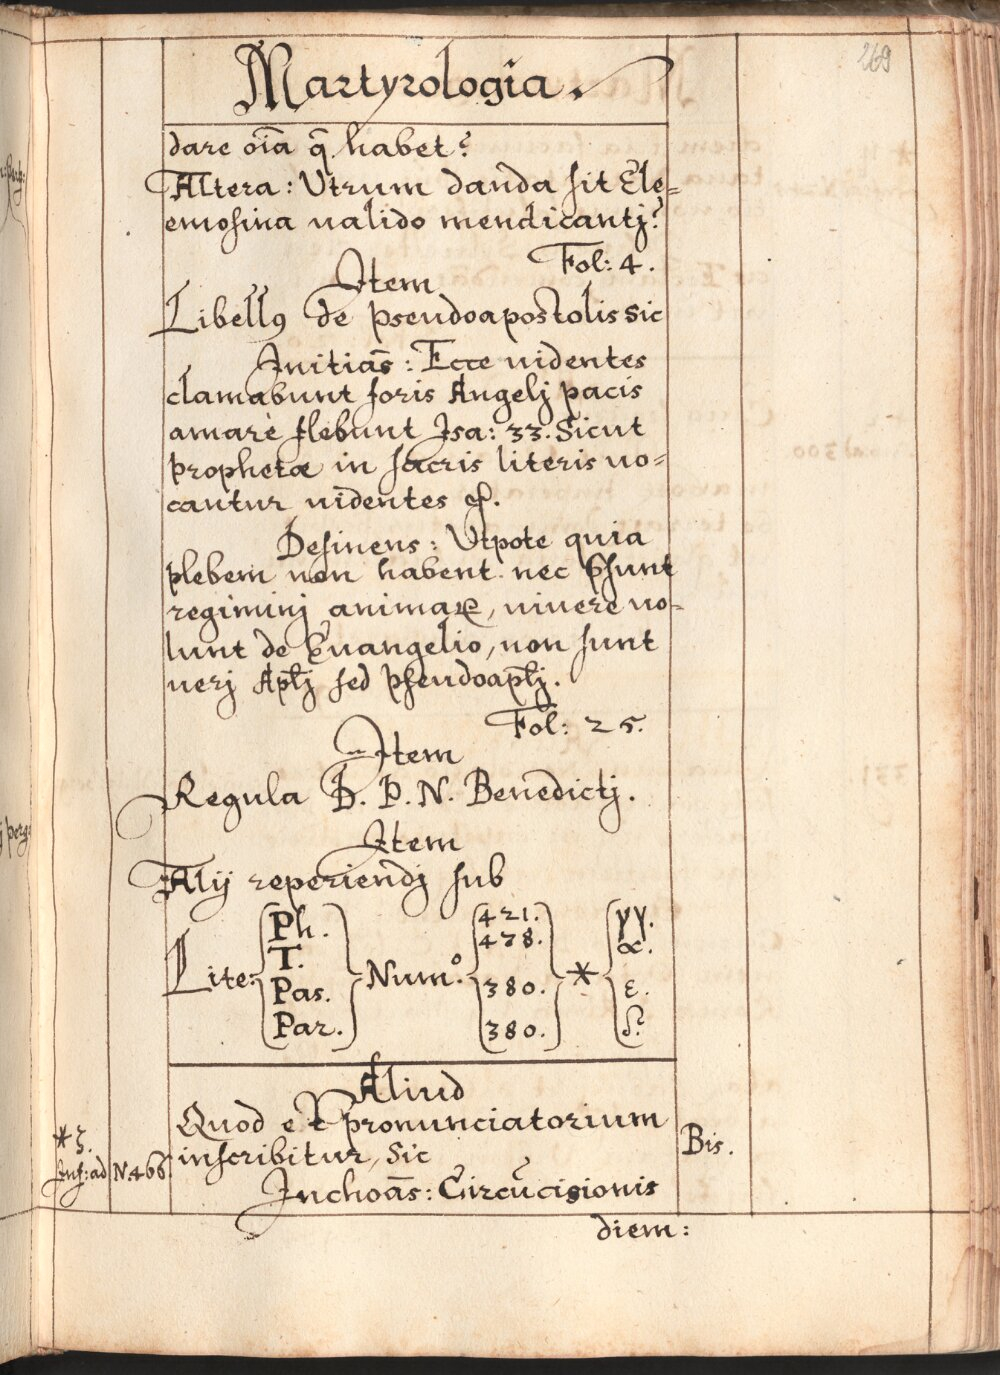 269
Martyrologia.
dare oīa q̄ habet?
Altera: Utrum danda sit Ele=
emosina valido mendicantj?
Fol: 4.
Item
Libellꝰ de pseudoapostolis sic
Initiās: Ecce videntes
clamabunt foris Angelj pacis
amarè flebunt Isa: 33. Sicut
prophetæ in sacris literis vo=
cantur videntes &.
Desinens: Utpote quia
plebem non habent nec p̄sunt
regiminj animaꝝ, vivere vo-
lunt de Evangelio, non sunt
verj Apłj sed pseudoapłj.
Fol: 25.
Item
Regula B. P. N. Benedictj.
Item
Alij reperiendj sub
Lite: Ph. T. Pas. Par. Num.º 421. 478. 380. 380. * γγ. α. ε. Ω.
Aliud
Quod et pronunciatorium
*3.
Ins: ad N. 466. inscribitur, sic Bis.
Inchoās: Circūcisionis
diem: